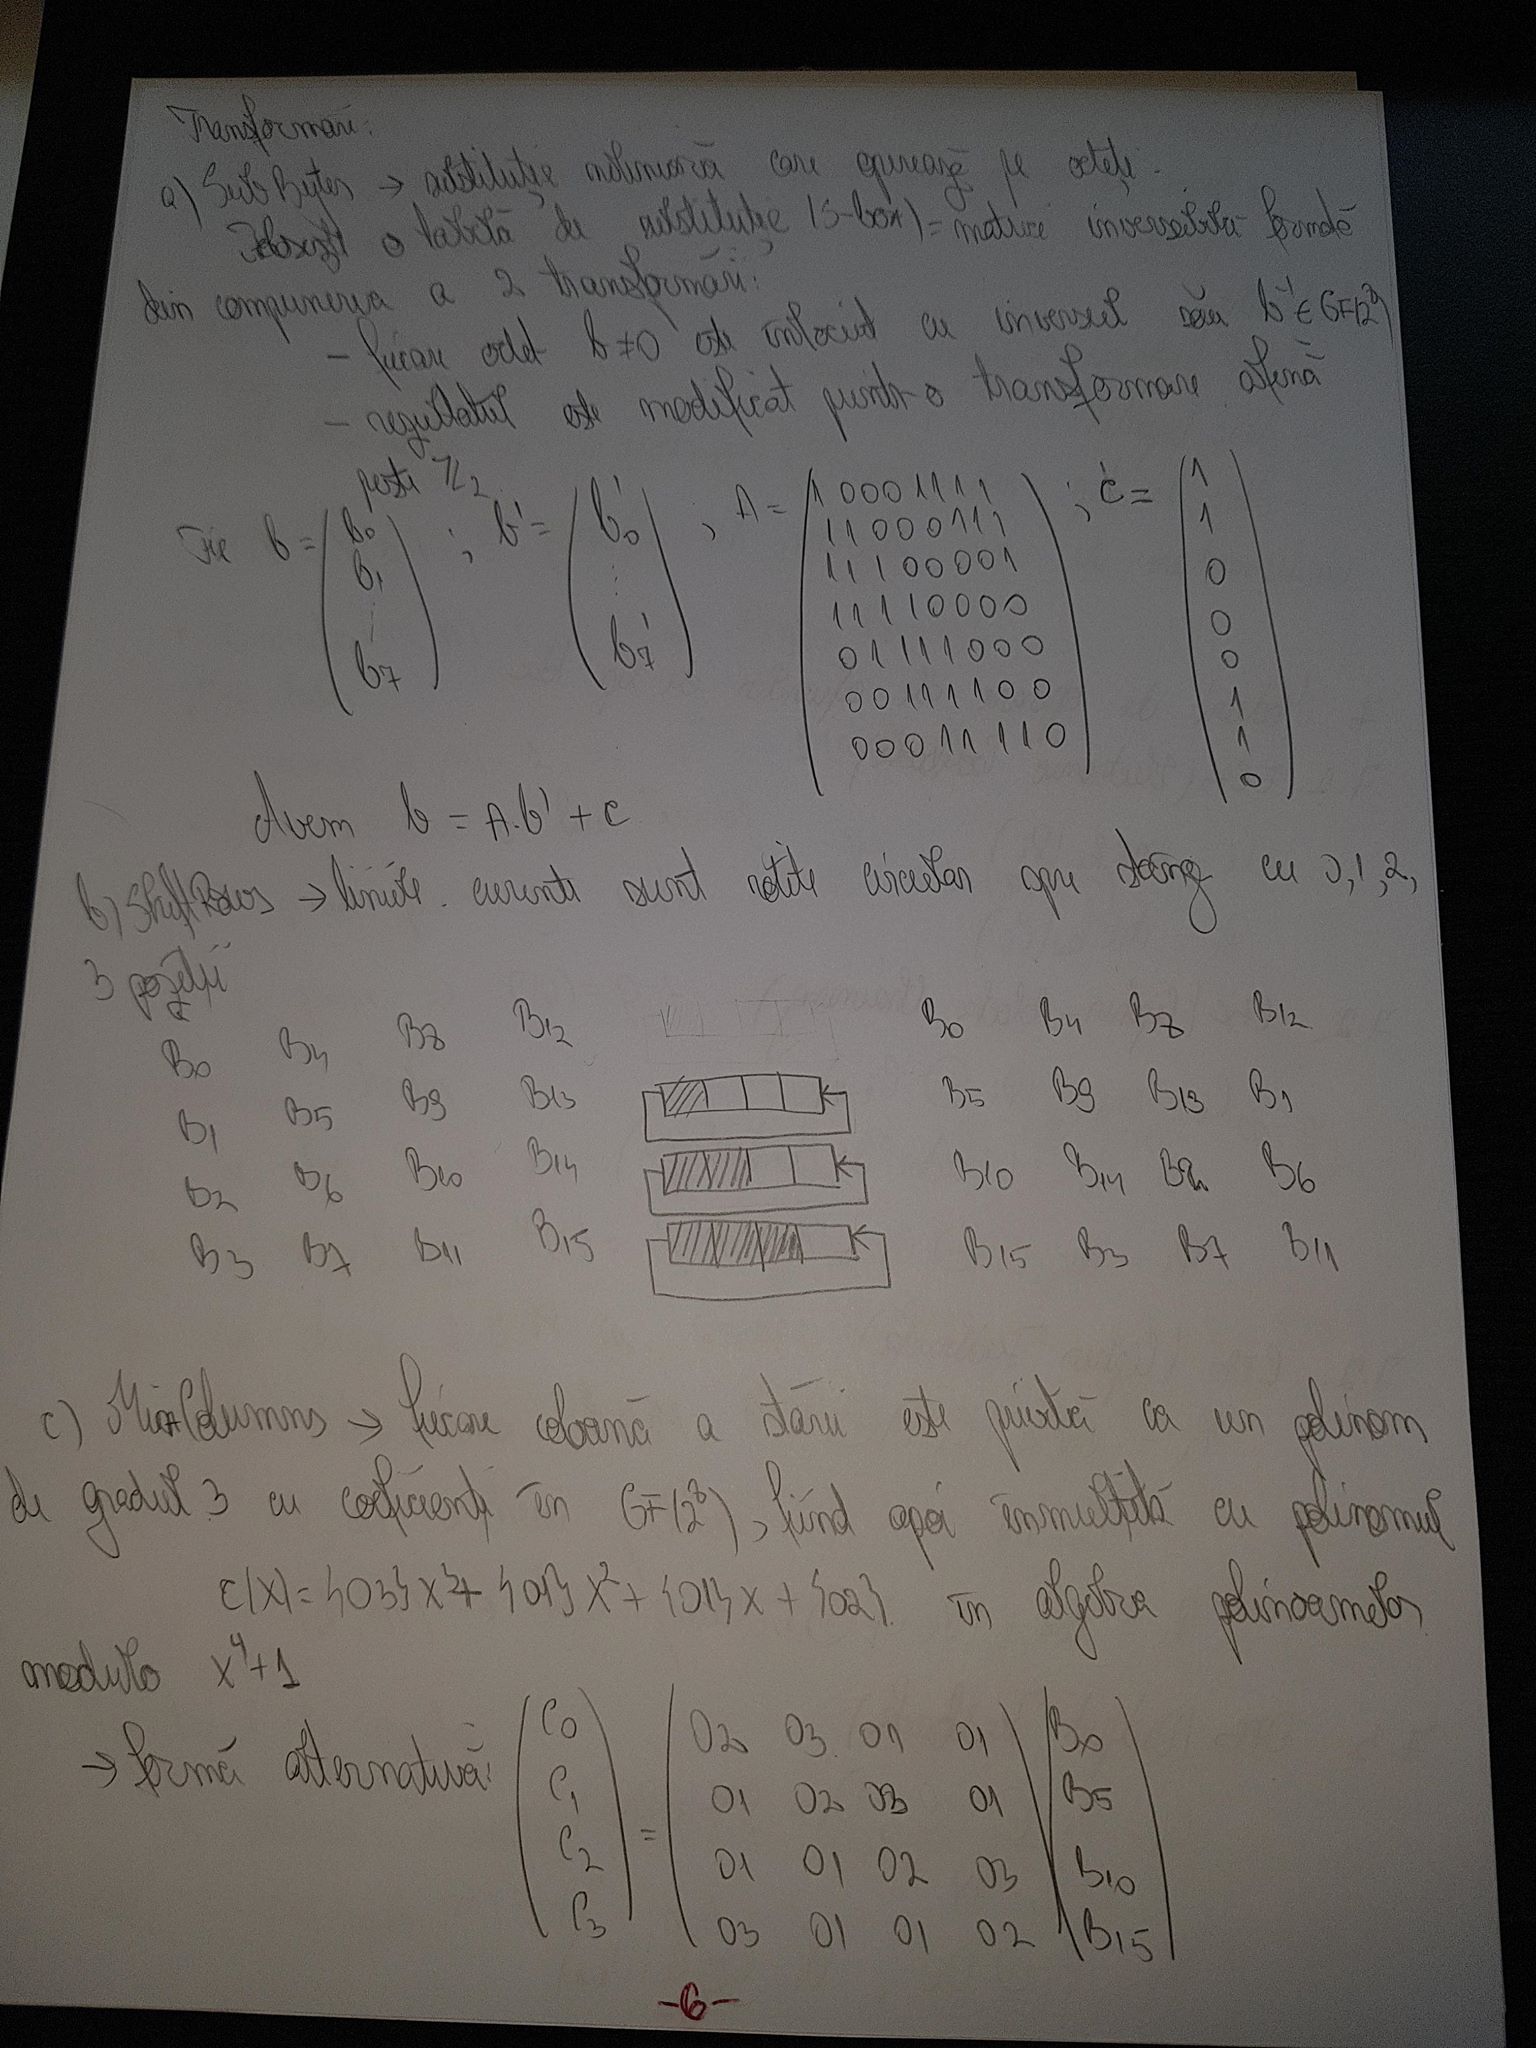 Transformări:
a) SubBytes → substituție neliniară care operează pe octeți.
Folosește o tabelă de substituție (S-box) = matrice inversabilă formată
din compunerea a 2 transformări:
- fiecare octet b≠0 este înlocuit cu inversul său b' ∈ GF(2⁸)
- rezultatul este modificat printr-o transformare afină
peste ℤ₂
Fie b = (b₀ b₁ ⋮ b₇) ; b' = (b'₀ ⋮ b'₇) , A = ; C =
1 0 0 0 1 1 1 1 1
1 1 0 0 0 1 1 1 1
1 1 1 0 0 0 0 1 0
1 1 1 1 0 0 0 0 0
0 1 1 1 1 0 0 0 0
0 0 1 1 1 1 0 0 1
0 0 0 1 1 1 1 0 1
0
Avem b = A·b' + C
b) ShiftRows → liniile curente sunt rotite circular spre stâng cu 0, 1, 2,
3 poziții
B0 B4 B8 B12 B0 B4 B8 B12
B1 B5 B9 B13 B5 B9 B13 B1
B2 B6 B10 B14 B10 B14 B2 B6
B3 B7 B11 B15 B15 B3 B7 B11
c) MixColumns → fiecare coloană a stării este privită ca un polinom
de gradul 3 cu coeficienți în GF(2⁸), fiind apoi înmulțită cu polinomul
c(X) = {03}X³ + {01}X² + {01}X + {02} în algebra polinoamelor
modulo X⁴+1
→ formă alternativă:
C0 = 02 03 01 01 B0
C1 01 02 03 01 B5
C2 01 01 02 03 B10
C3 03 01 01 02 B15
-6-